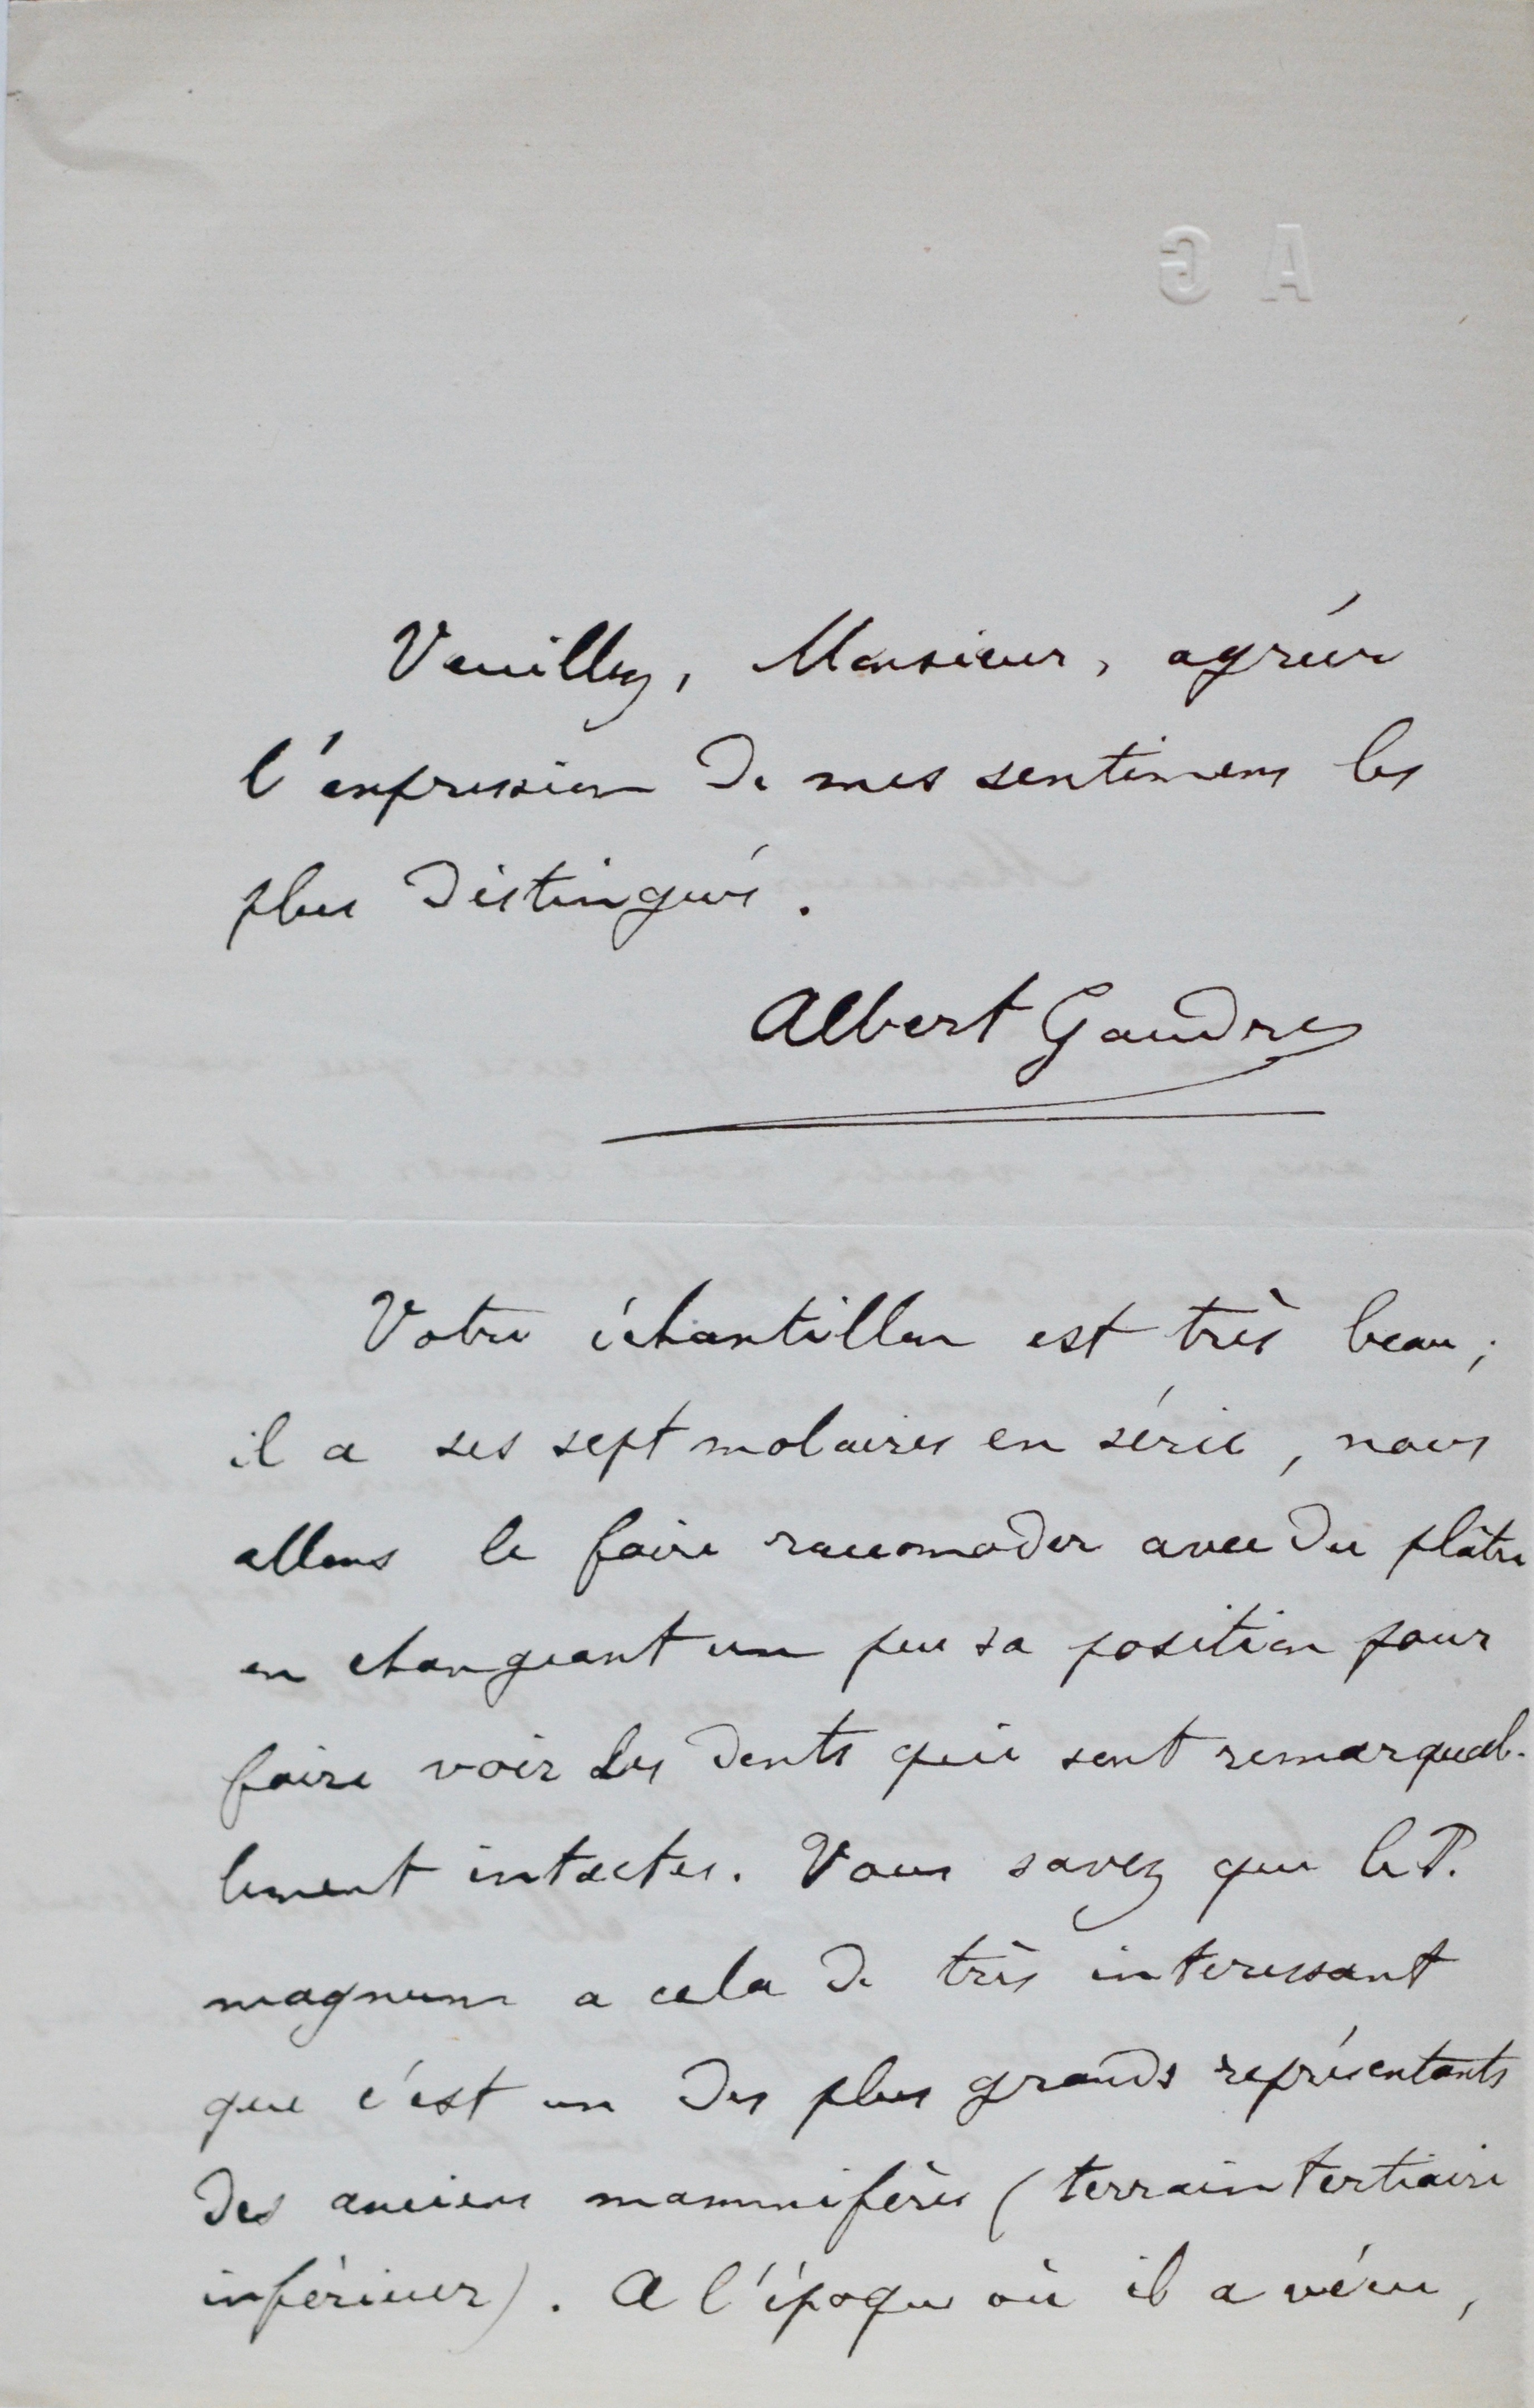 A G
Veuillez, Monsieur, agréer
l'expression de mes sentimens les
plus distingués.
Albert Gaudry
Votre échantillon est très beau;
il a ses sept molaires en série, nous
allons le faire raccomoder avec du plâtre
en changeant un peu sa position pour
faire voir les dents qui sont remarquab-
lement intactes. Vous savez que le P.
magnum a cela de très interessant
que c'est un des plus grands représentants
des anciens mammifères (terrain tertiaire
inférieur). A l'époque où il a vécu,